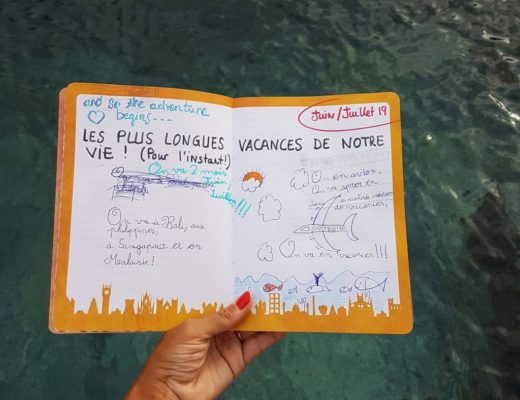 and so the adventure
begins...
Juin/Juillet 19
LES PLUS LONGUES VACANCES DE NOTRE
VIE ! (Pour l'instant!)
On va 2 mois
Juin/
Juillet!!!
On va à Bali, aux
philippines,
à Singapour et en
Malaisie!
On en avion.
On va après en
à notre maison
de vacances.
On va en vacances!!!